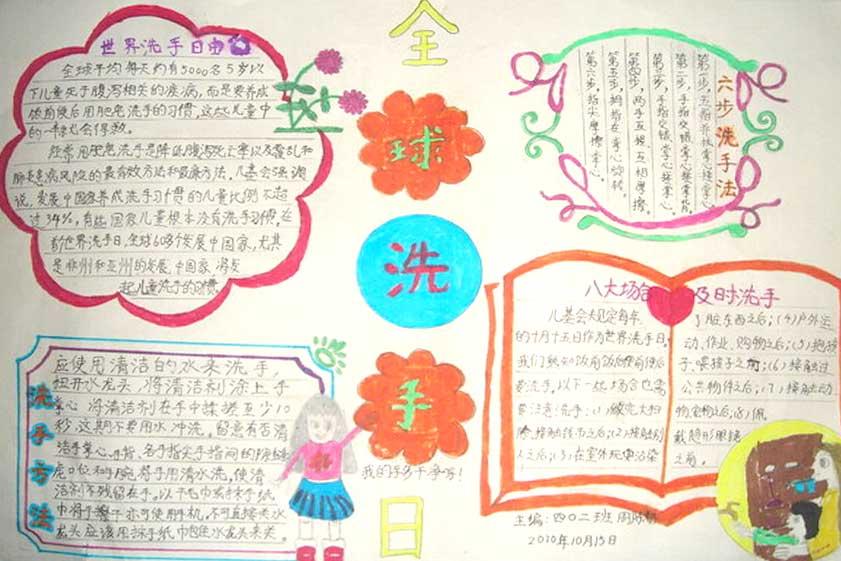 全
球
洗
手
日
世界洗手日
全球平均每天约有5000名5岁以
下儿童死于腹泻相关的疾病,而是要养成
饭前便后用肥皂洗手的习惯,这些儿童中
的一半就会得救。
经常用肥皂洗手是降低腹泻死亡率以及霍乱和
肺炎患病风险的最有效方法和最廉方法。儿基会强调
说,发展中国家养成洗手习惯的儿童比例不超
过34%,有些国家儿童根本没有洗手习惯,在
首世界洗手日,全球60多个发展中国家,尤其
是非州和亚州的发展中国家,将发
起儿童洗手的习惯
六步洗手法
第一步,五指并拢掌心搓掌心
第二步,手指交错掌心搓掌背,
第三步,手指交错掌心搓掌心,
第四步,两手互握互相摩擦,
第五步,拇指在掌心旋转,
第六步,指尖摩擦掌心。
洗手方法
应使用清洁的水来洗手,
扭开水龙头,将清洁剂涂上手
掌心,将清洁剂在手中揉搓至少10
秒,这期不要用水冲洗,留意有否清
洁手掌心,手指,各手指尖手指间的
虎口位和手腕,将手用清水洗,使清
洁剂不残留在手。以干毛巾或抹手纸
巾将手擦干亦可使用手机,不可直接关水
龙头应该用抹手纸巾包住水龙头来关。
我的手多干净呀!
八大场合 及时洗手
儿基会规定每年
的十月十五日作为世界洗手日,
我们熟知饭前饭后便前便后
要洗手,以下一些场合也需
要注意洗手:(1)做完大扫
除,接触钱币之后;(2)接触别
人之后;(3)在室外玩耍沾染
了脏东西之后;(4)户外运
动、作业、购物之后;(5)抱孩
子、喂孩子之前;(6)接触过
公共物件之后;(7)接触动
物宠物之后;(8)佩
戴隐形眼镜
之前。
主编:四〇二班
2010年10月15日